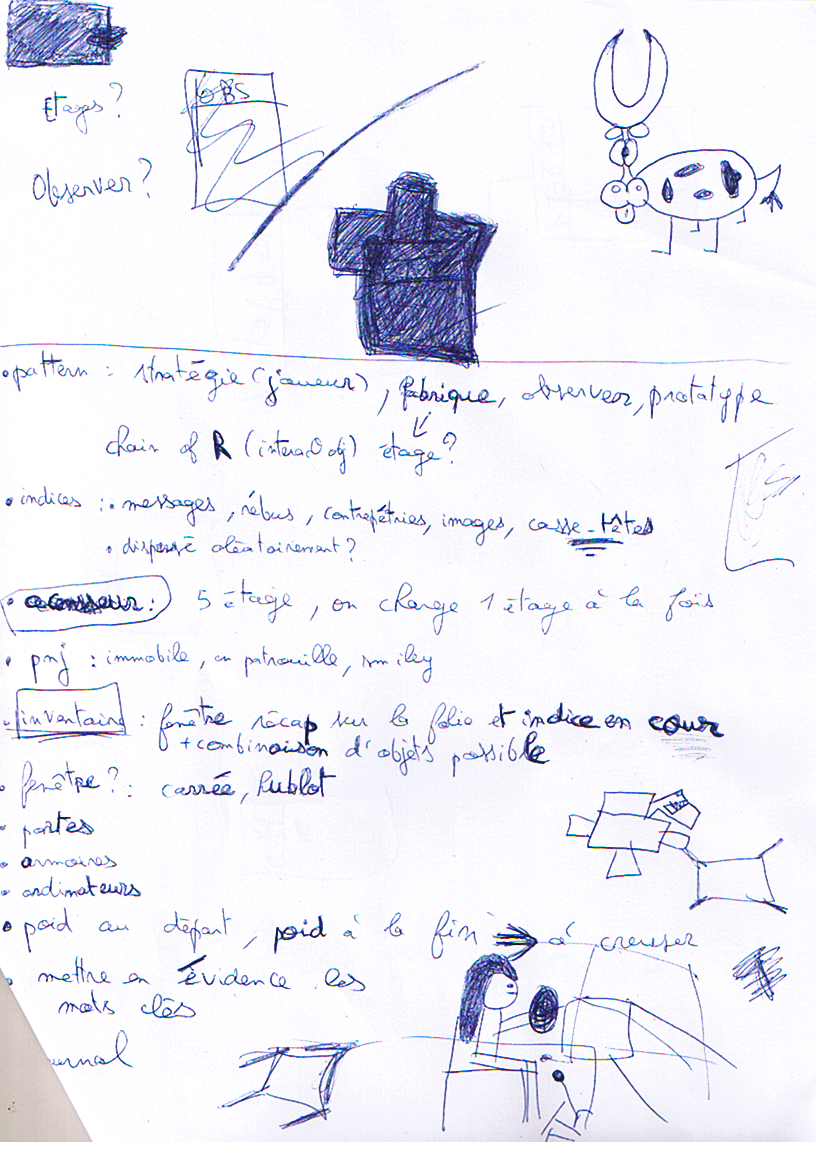 Etages?
OBS
Observer?
• pattern : stratégie (joueur), fabrique, observeur, prototype
chain of R (interac° obj) étage?
• indices : • messages, rébus, contrepétries, images, casse-têtes
• dispersé aléatoirement?
• ascenseur : 5 étage, on charge 1 étage à la fois
• pnj : immobile, en patrouille, smiley
• inventaire : fenêtre récap sur la folie et indice en cour
+ combinaison d'objets possible
• fenêtre? : carrée, hublot
• portes
• armoires
• ordinateurs
• poid au départ, poid à la fin → à creuser
• mettre en évidence les
mots clés